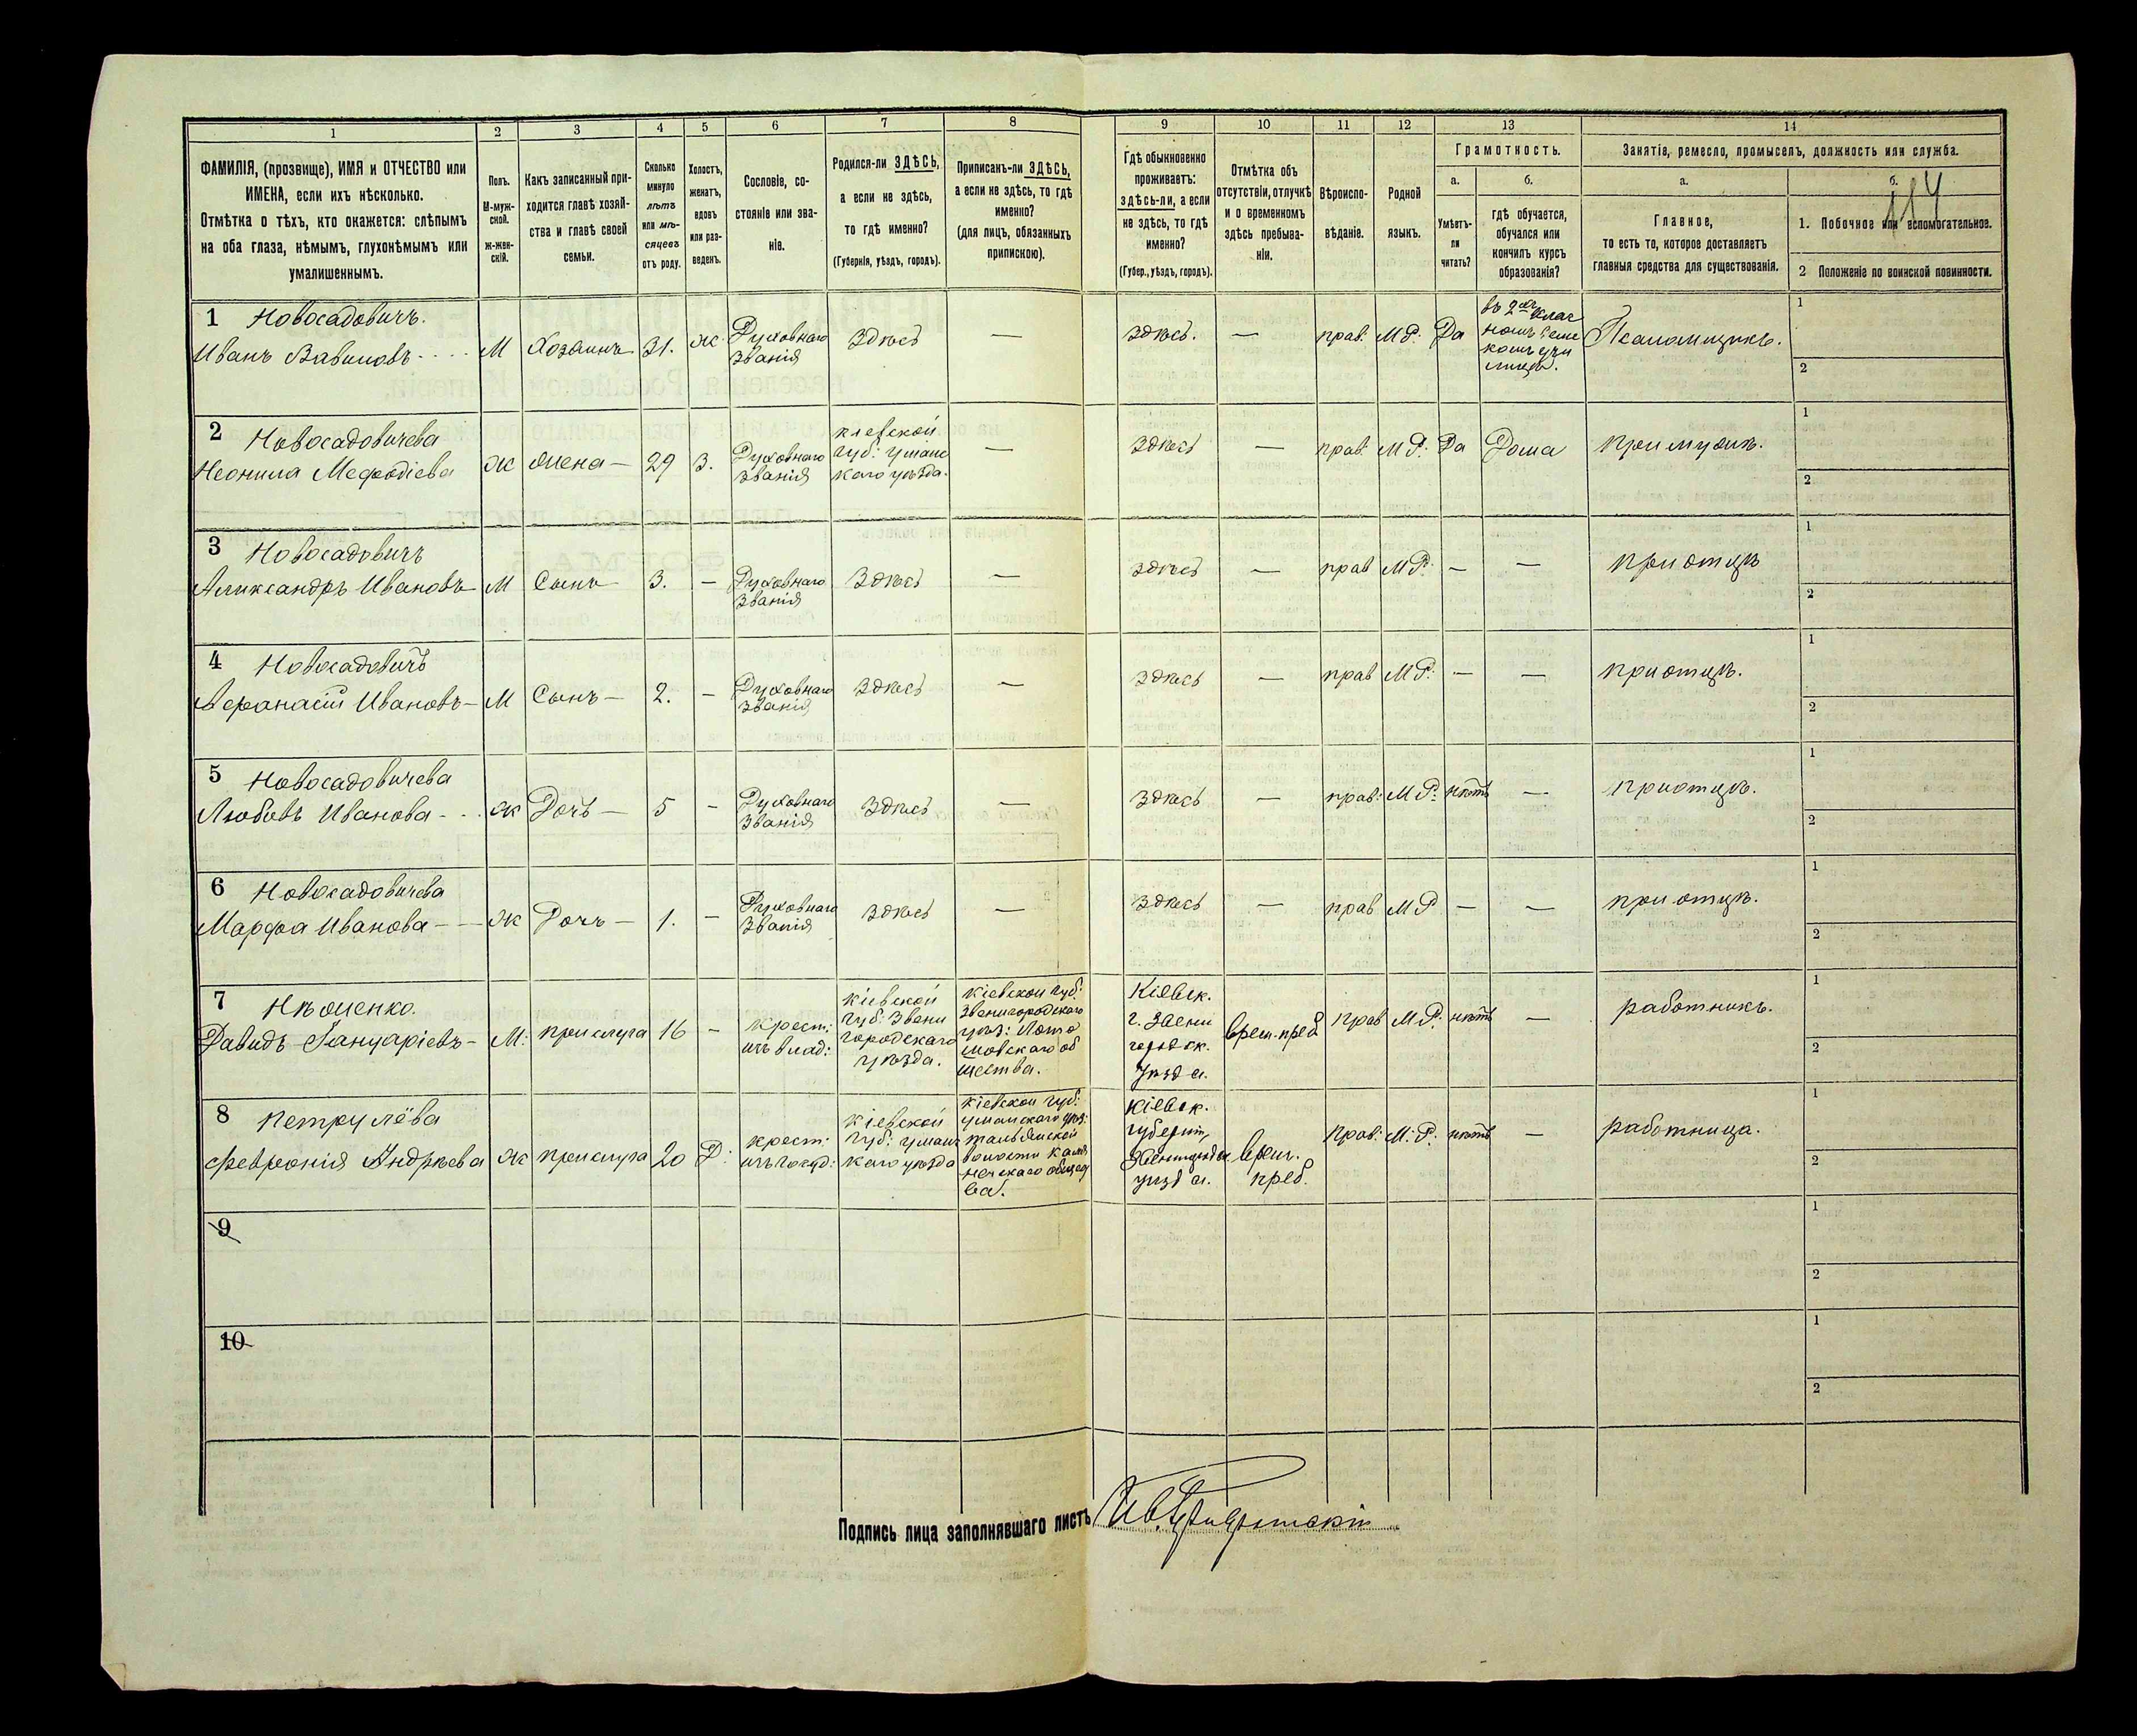 1
2
3
4
5
6
7
8
9
10
11
12
13
14
ФАМИЛІЯ, (прозвище), ИМЯ и ОТЧЕСТВО или
ИМЕНА, если ихъ нѣсколько.
Отмѣтка о тѣхъ, кто окажется: слѣпымъ
на оба глаза, нѣмымъ, глухонѣмымъ или
умалишеннымъ.
Полъ.
М-муж-
ской.
ж-жен-
скій.
Какъ записанный при-
ходится главѣ хозяй-
ства и главѣ своей
семьи.
Сколько
минуло
лѣтъ
или мѣ-
сяцевъ
отъ роду.
Холостъ,
женатъ,
вдовъ
или раз-
веденъ.
Сословіе, со-
стояніе или зва-
ніе.
Родился-ли ЗДѢСЬ,
а если не здѣсь,
то гдѣ именно?
(Губернія, уѣздъ, городъ).
Приписанъ-ли ЗДѢСЬ,
а если не здѣсь, то гдѣ
именно?
(для лицъ, обязанныхъ
припискою).
Гдѣ обыкновенно
проживаетъ:
здѣсь-ли, а если
не здѣсь, то гдѣ
именно?
(Губер., уѣздъ, городъ).
Отмѣтка объ
отсутствіи, отлучкѣ
и о временномъ
здѣсь пребыва-
ніи.
Вѣроиспо-
вѣданіе.
Родной
языкъ.
Грамотность.
а.
Умѣетъ-
ли
читать?
б.
гдѣ обучается,
обучался или
кончилъ курсъ
образованія?
Занятіе, ремесло, промыселъ, должность или служба.
а.
Главное,
то есть то, которое доставляетъ
главныя средства для существованія.
б.
114
1. Побочное или вспомогательное.
2 Положеніе по воинской повинности.
1 Новосадовичъ.
Иванъ Вавиловъ - М Хозяинъ 31. ж. Духовнаго
званія Здѣсь — здѣсь. — прав. М.Р. Да въ 2хъ клас
училищѣ. Псаломщикъ. 1
2
2 Новосадовичева
Неонила Мефодіева Ж жена — 29 З. Духовнаго
званія кіевской
губ: уманс
каго уѣзда. — здѣсь — прав. М.Р. Да Дома при мужѣ. 1
2
3 Новосадовичъ
Александръ Ивановъ М Сынъ 3. — Духовнаго
званія Здѣсь — здѣсь — прав М.Р. — — при отцѣ 1
2
4 Новосадовичъ
Афанасій Ивановъ — М Сынъ — 2. — Духовнаго
званія здѣсь — здѣсь — прав М.Р. — — при отцѣ. 1
2
5 Новосадовичева
Любовь Иванова - ж Дочь — 5 — Духовнаго
званія Здѣсь — здѣсь — прав: М.Р. нѣтъ — при отцѣ. 1
2
6 Новосадовичева
Марфа Иванова — ж Дочь — 1. — Духовнаго
званія здѣсь — здѣсь — прав М.Р — — при отцѣ. 1
2
7
Давидъ Іануаріевъ — М: прислуга 16 — крест:
изъ влад: кіевской
губ: Звени
городскаго
уѣзда. кіевской губ:
Звенигородскаго
уѣз:
щества. Кіевск.
г. Звени
городск.
уѣзда. врем. преб прав М.Р. нѣтъ — работникъ. 1
2
8 Петрулёва
Февронія Андрѣева ж прислуга 20 Д: крест:
изъ госуд: Кіевской
губ: уманс
каго уѣзда кіевской губ:
уманскаго уѣз:
тальянской
волости каме
нечскаго общест
ва. Кіевск.
губерніи,
уѣзда. врем.
преб. Прав: М.Р: нѣтъ — работница. 1
2
9
1
2
10
1
2
Подпись лица заполнявшаго листъ